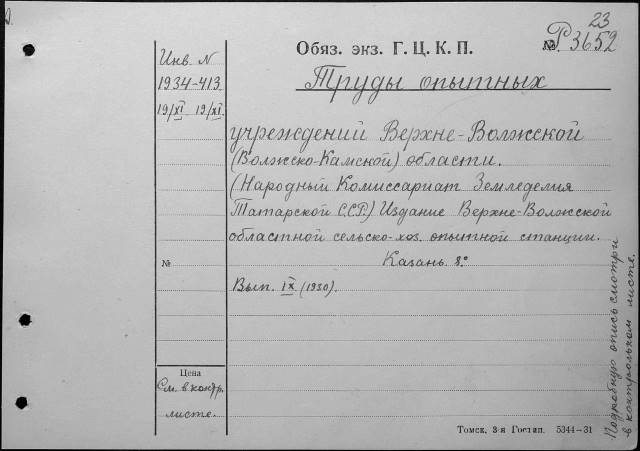 23
Обяз. экз. Г. Ц. К. П.
№ Р3652
Инв. N
1934-413
19/XI 19/XI.
Труды опытных
учреждений Верхне-Волжской
(Волжско-Камской) области.
(Народный Комиссариат Земледелия
Татарской С.С.Р.) Издание Верхне-Волжской
областной сельско-хоз. опытной станции.
Казань 8°
№
Вып. IX (1930).
Цена
См. в контр.
листе.
Подробную опись смотри
в контрольном листе.
Томск, 3-я Гостип. 5344—31